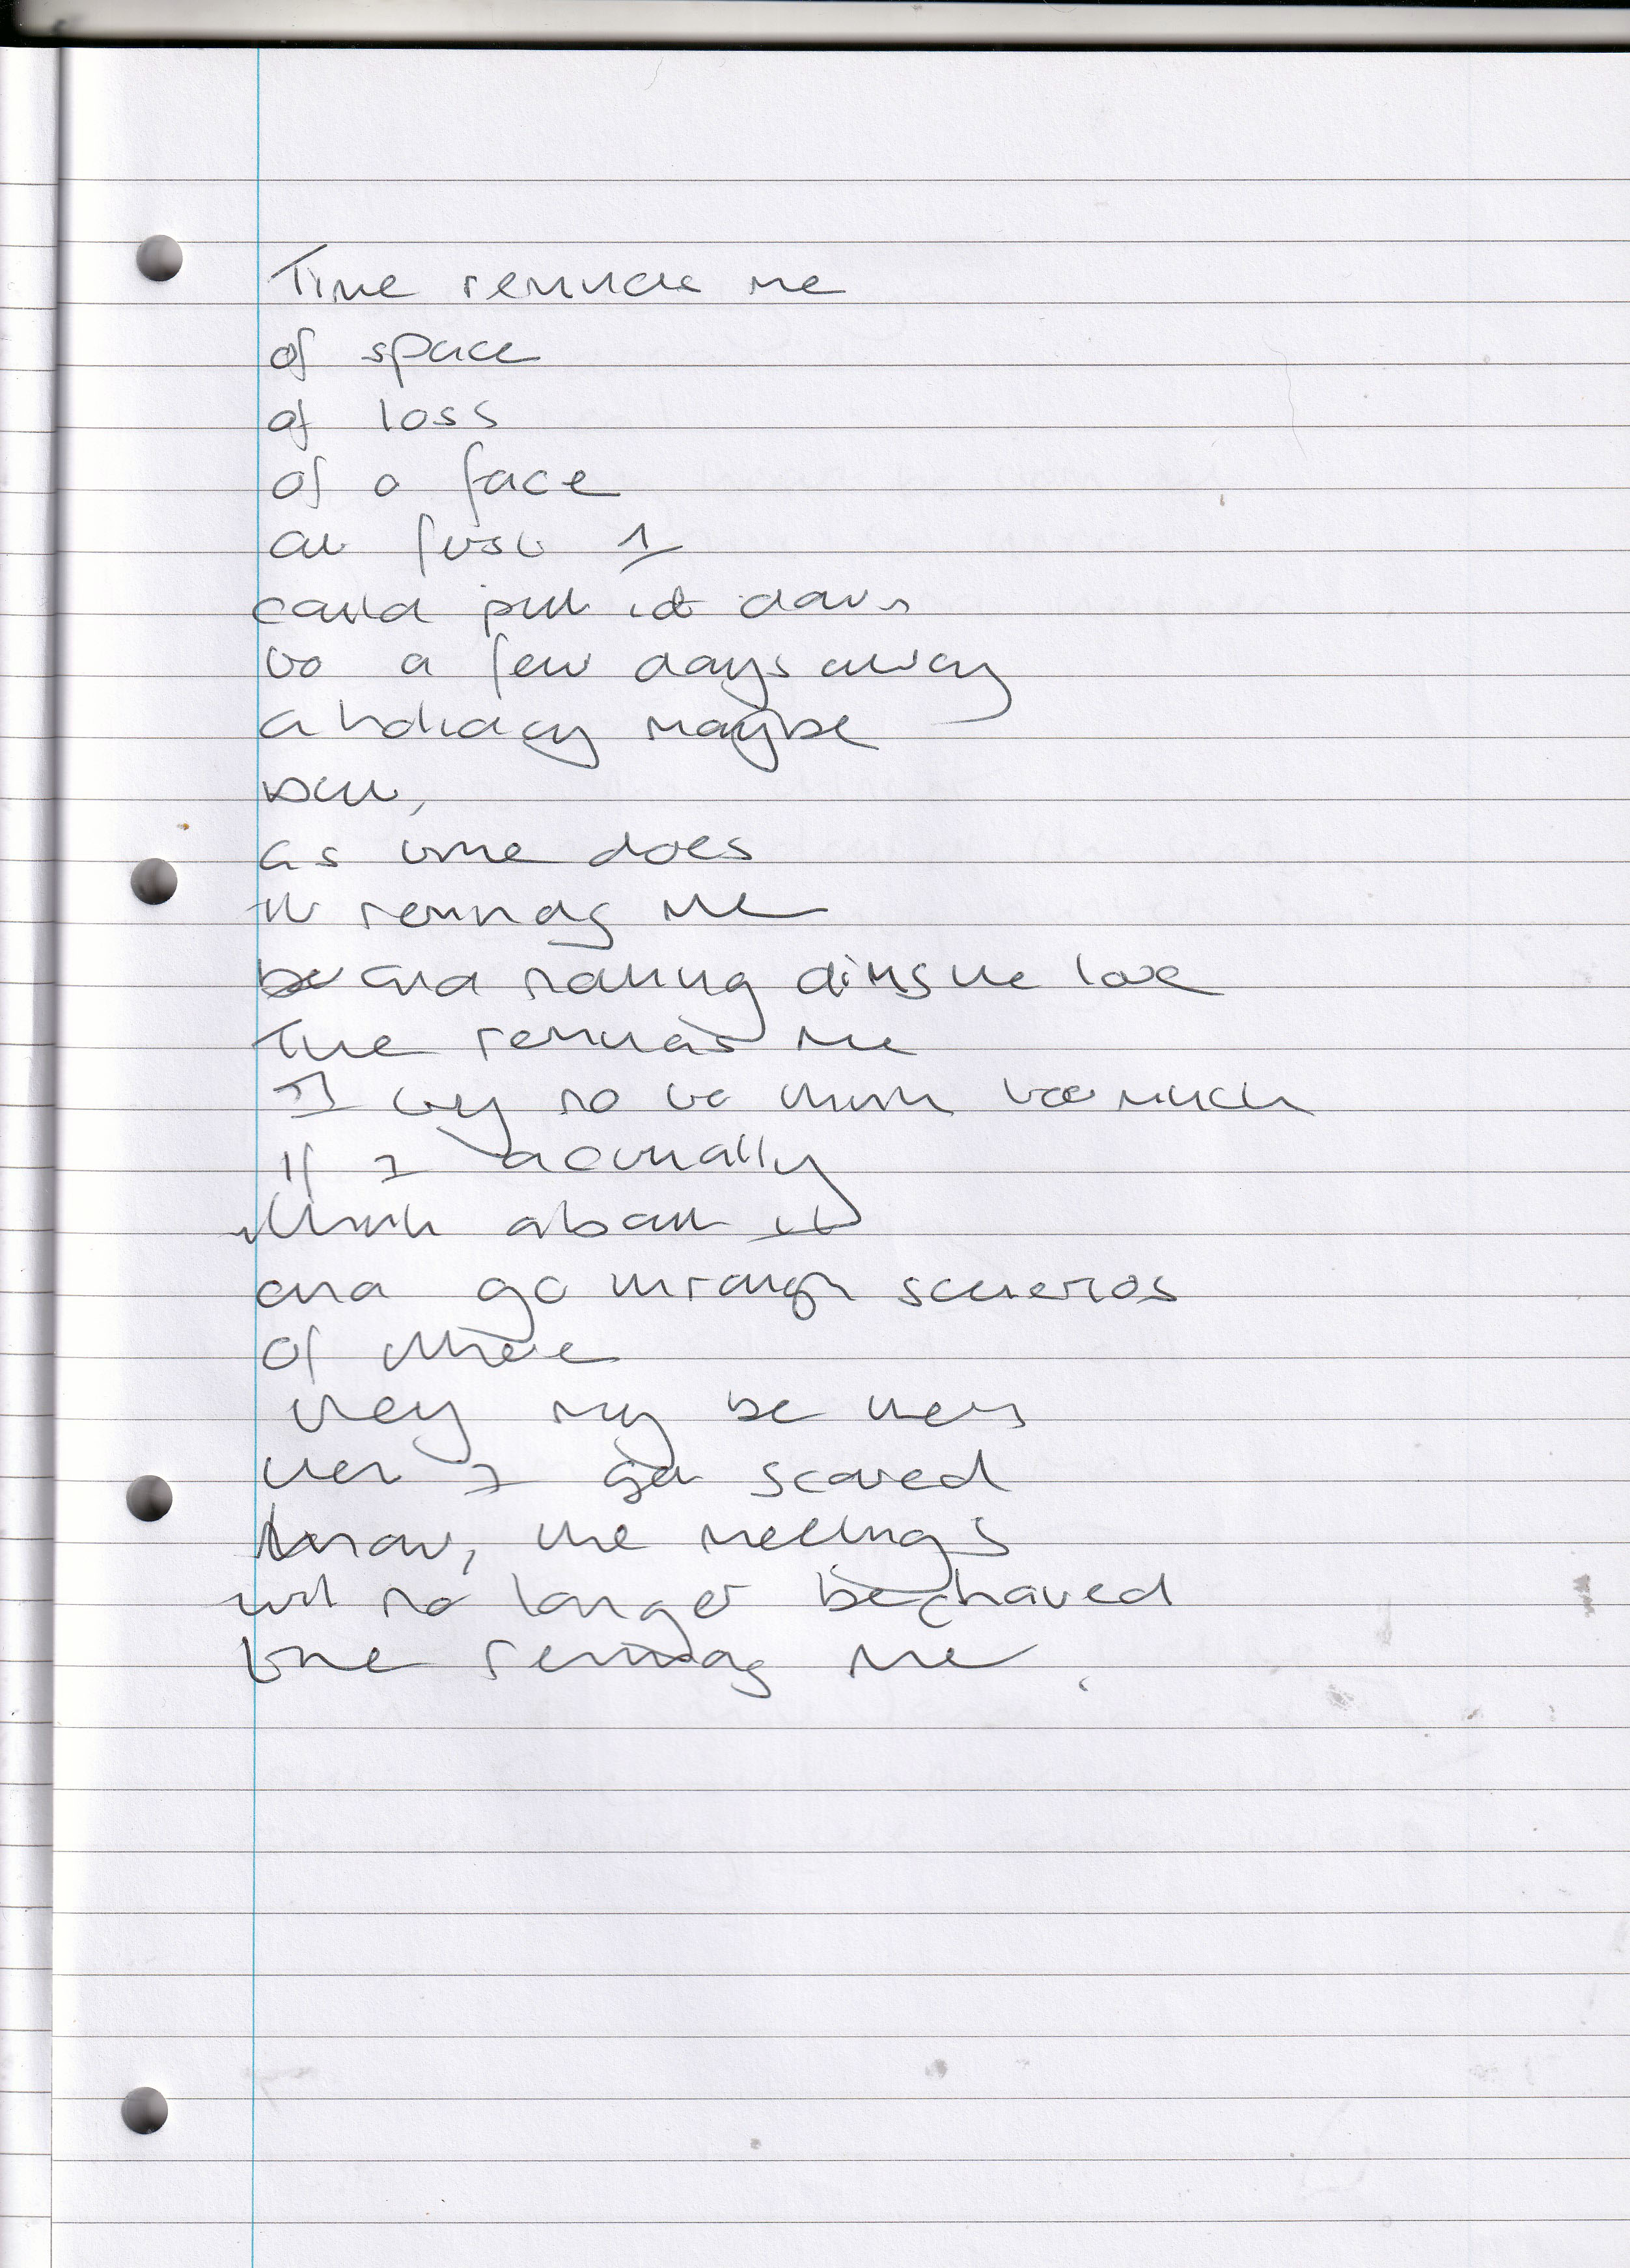 Time reminds me
of space
of loss
of a face
at first I
could put it down
to a few days away
a holiday maybe
but,
as time does
it reminds me
and nothing dims the love
Time reminds me
I try not to think too much
If I actually
think about it
and go through scenerios
of where
they may be then
then I get scared
know, the meetings
will no longer be shared
time reminds me.